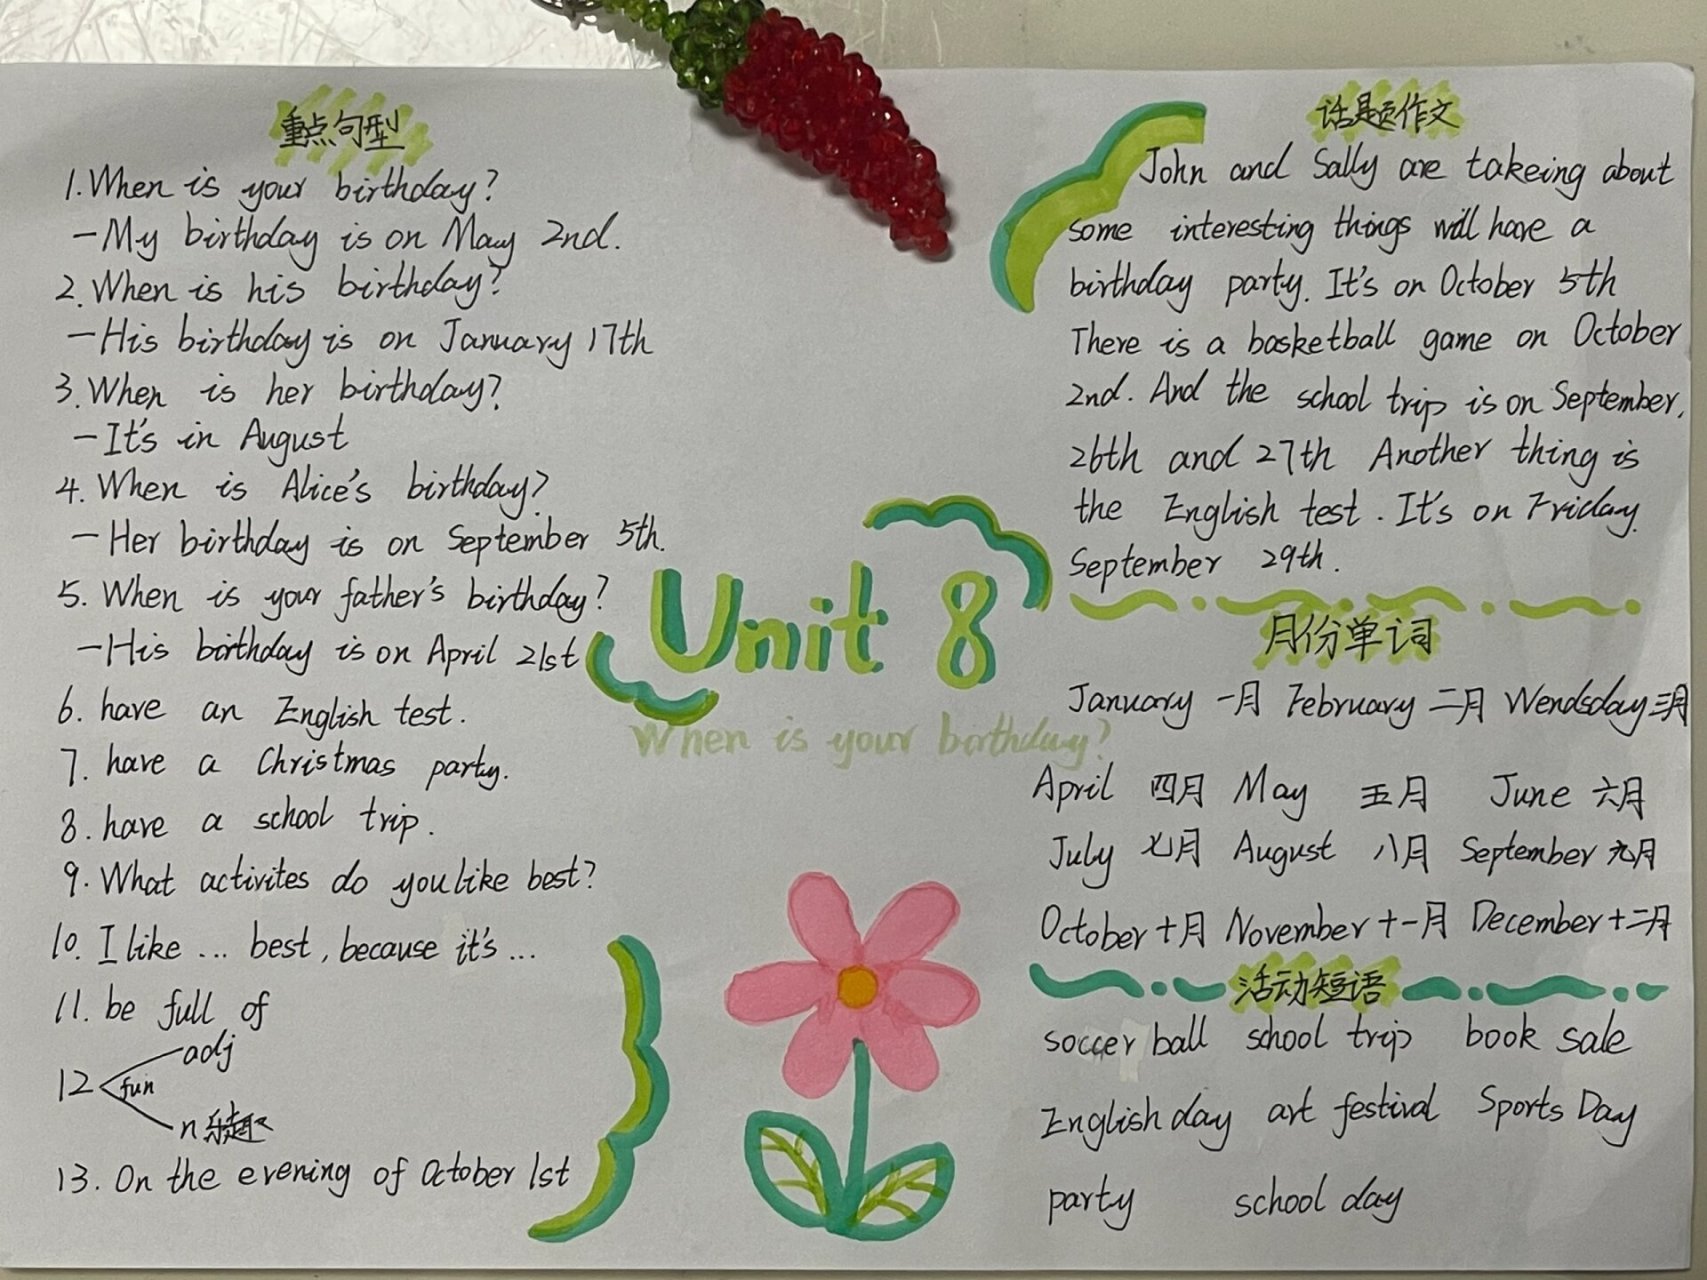 重点句型
1. When is your birthday?
— My birthday is on May 2nd.
2. When is his birthday?
— His birthday is on January 17th
3. When is her birthday?
— It's in August
4. When is Alice's birthday?
— Her birthday is on September 5th.
5. When is your father's birthday?
— His birthday is on April 21st
6. have an English test.
7. have a Christmas party.
8. have a school trip.
9. What activites do you like best?
10. I like ... best, because it's ...
11. be full of
adj
12 fun
n 乐趣
13. On the evening of October 1st
Unit 8
When is your birthday?
话题作文
John and Sally are takeing about
some interesting things will have a
birthday party. It's on October 5th
There is a basketball game on October
2nd. And the school trip is on September.
26th and 27th Another thing is
the English test. It's on Friday.
September 29th.
月份单词
January 一月 February 二月 Wendsday 三月
April 四月 May 五月 June 六月
July 七月 August 八月 September 九月
October 十月 November 十一月 December 十二月
活动短语
soccer ball school trip book sale
English day art festival Sports Day
party school day